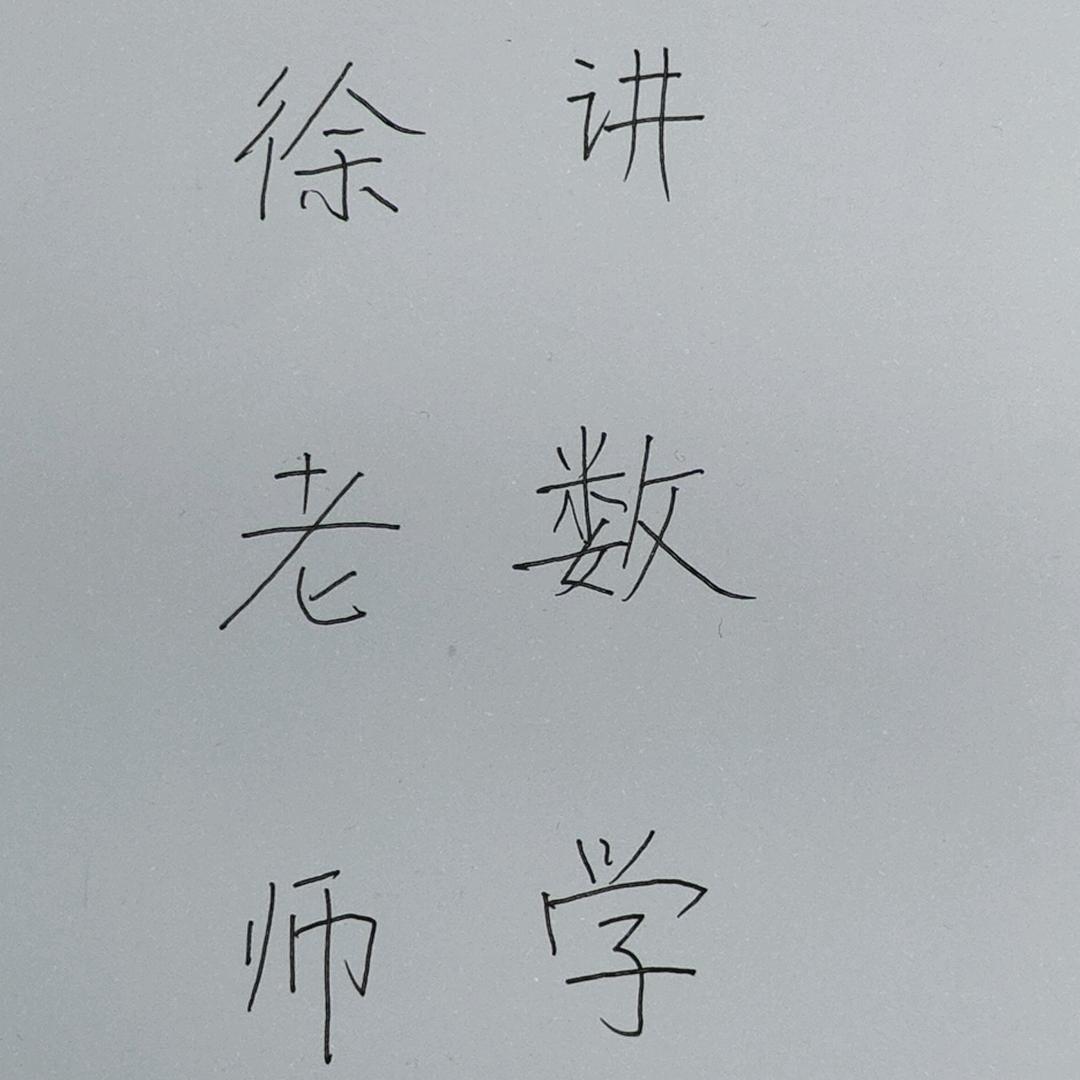 徐老师
讲数学